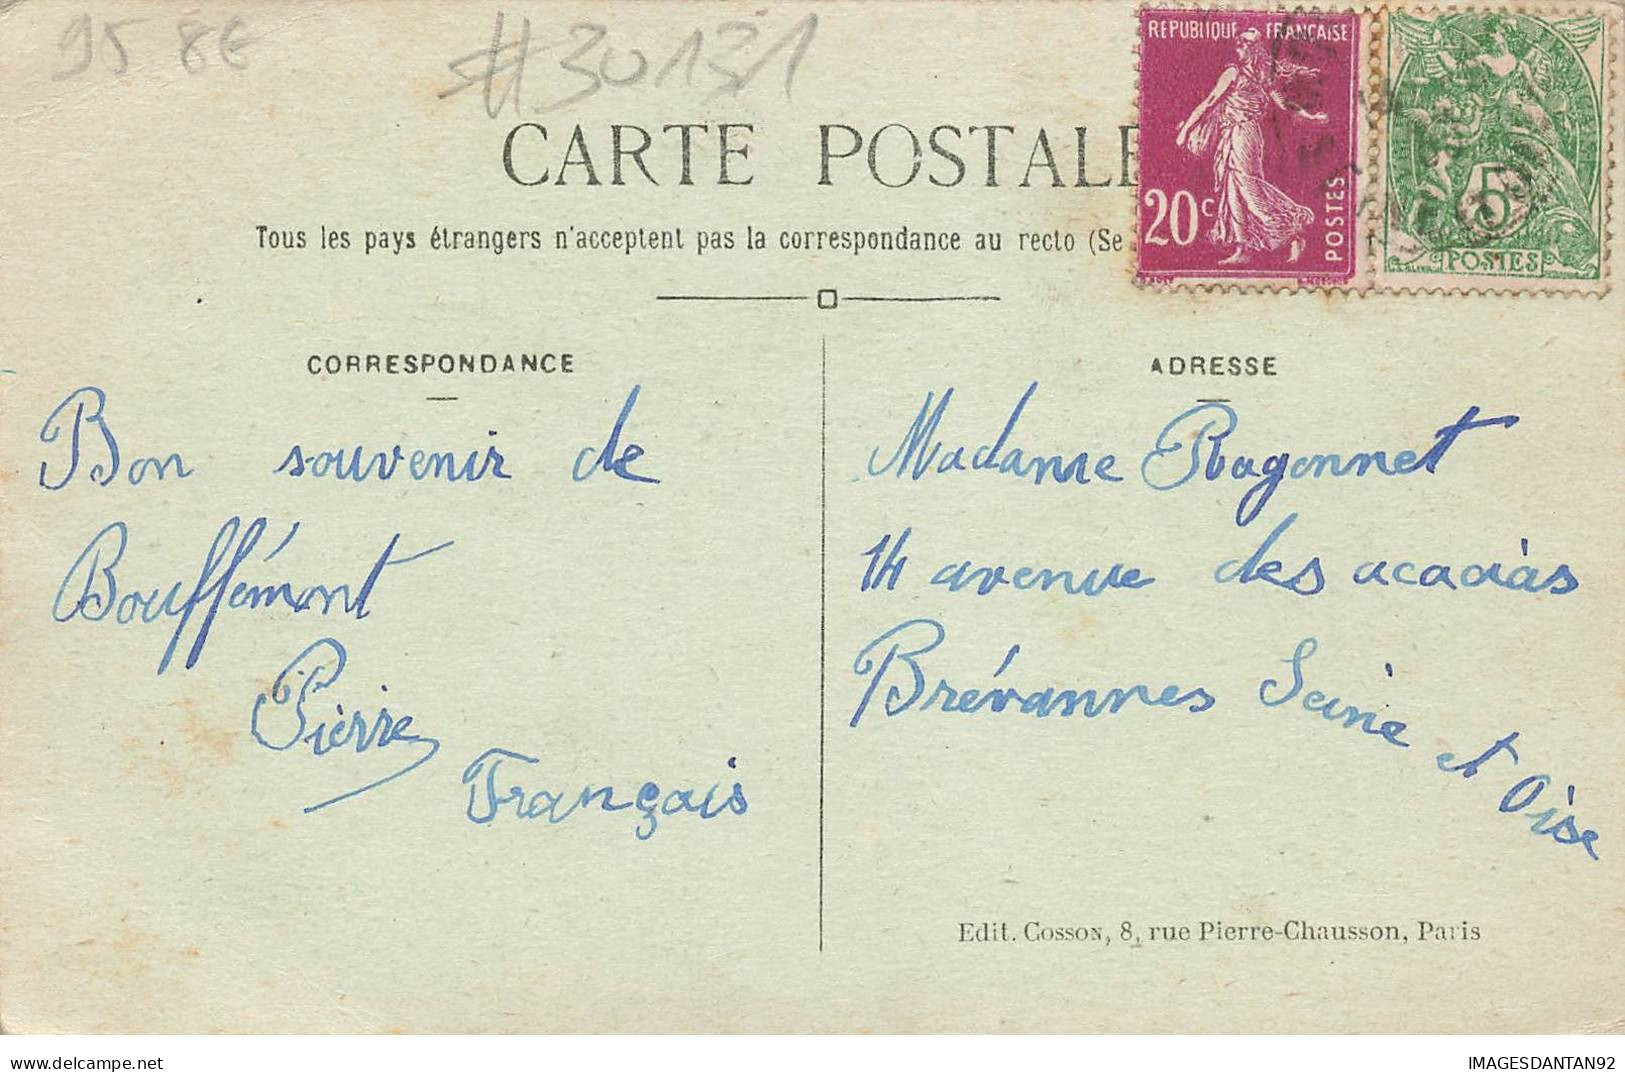 95 8€
#30131
CARTE POSTALE
Tous les pays étrangers n'acceptent pas la correspondance au recto (Se
REPUBLIQUE FRANÇAISE
20c
POSTES
5
POSTES
CORRESPONDANCE
Bon souvenir de
Bouffémont
Pierre
Français
ADRESSE
Madame Ragonnet
14 avenue des acacias
Brévannes Seine et Oise
Edit. COSSON, 8, rue Pierre-Chausson, Paris
delcampe.net
IMAGESDANTAN92